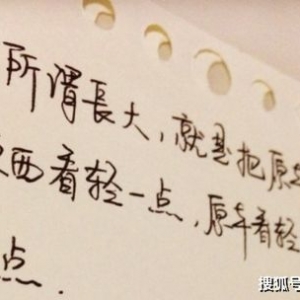 所谓長大，就是把原
西看轻一点，原本看轻
点.
搜狐号